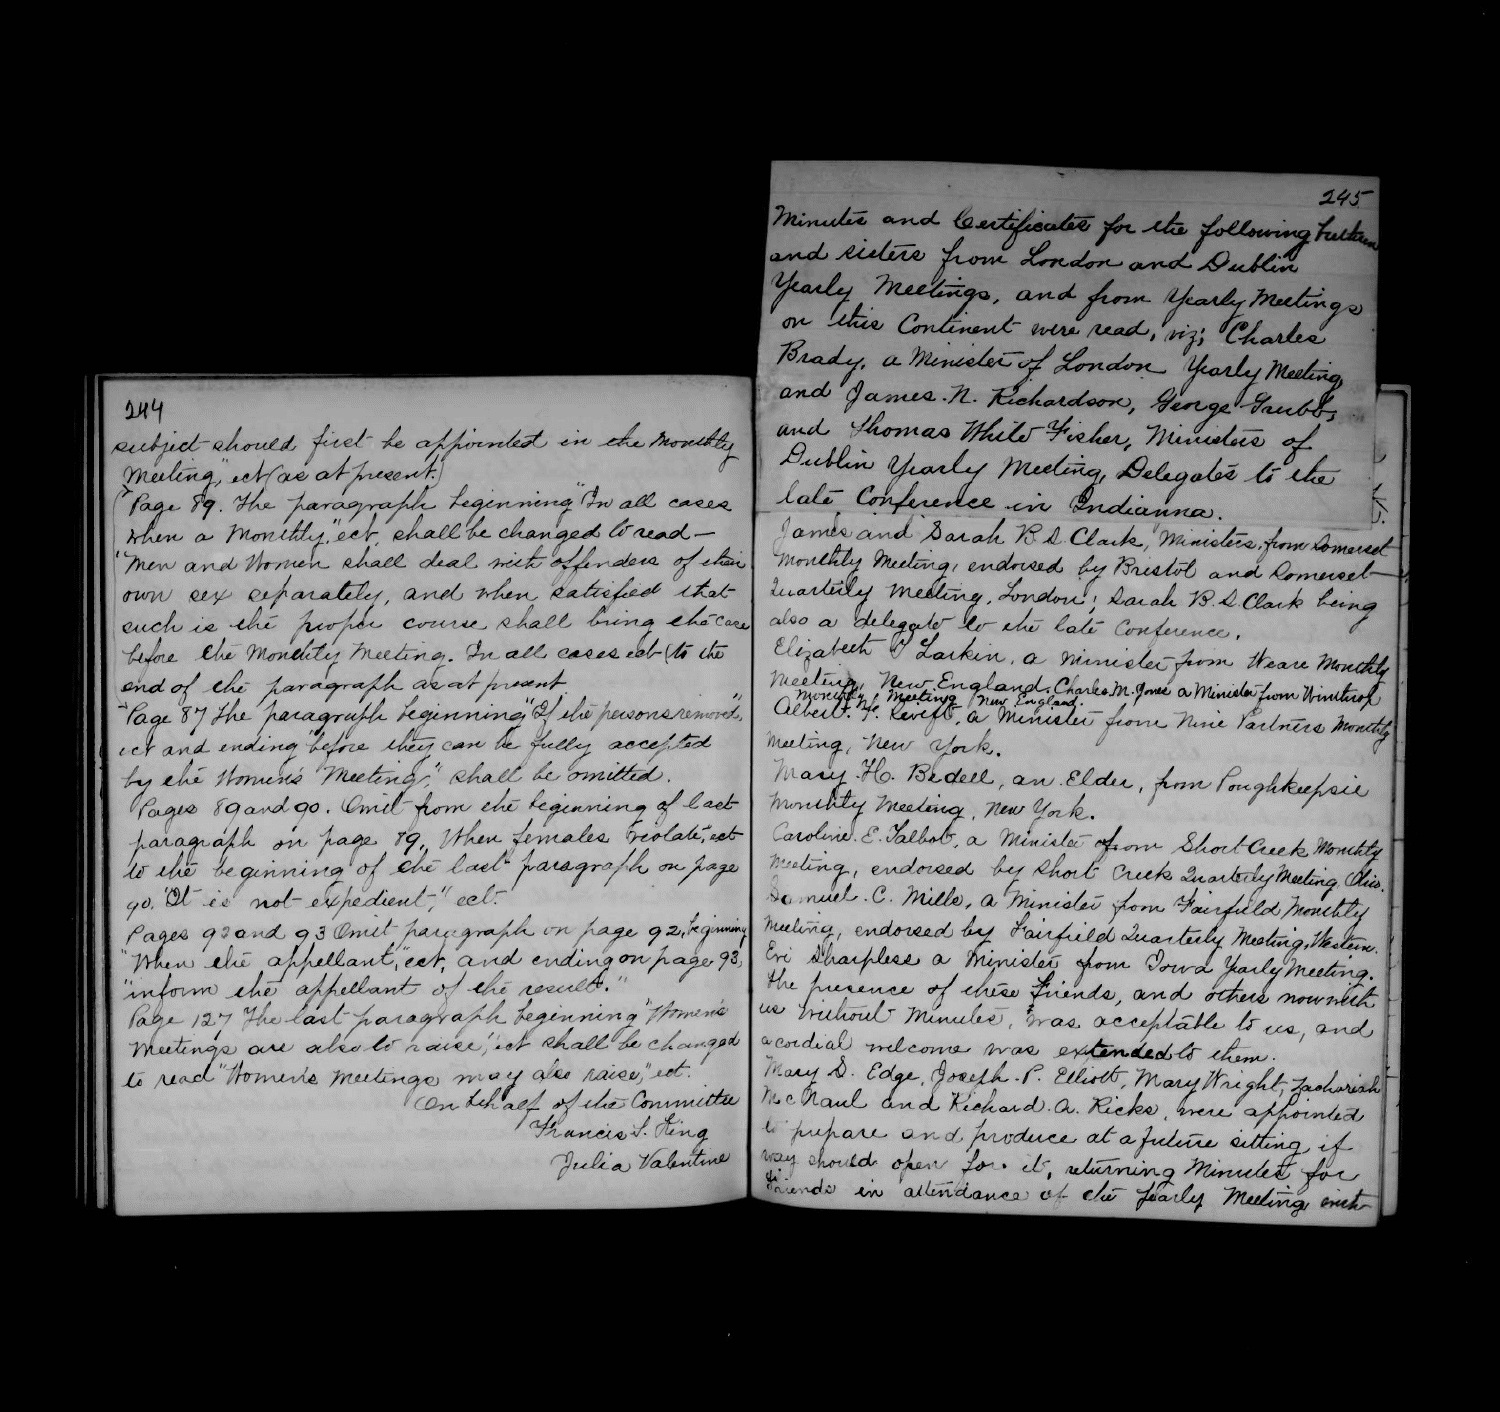 244
subject should first be appointed in the Monthly
Meeting," ect (as at present.)
"Page 89. The paragraph beginning "In all cases
when a Monthly," ect, shall be changed to read—
"Men and Women shall deal with offenders of their
own sex separately, and when satisfied that
such is the proper course shall bring the case
before the Monthly Meeting. In all cases ect (to the
end of the paragraph as at present
"Page 87 The paragraph beginning "If the persons removed,"
ect and ending "before they can be fully accepted
by the Women's Meeting," shall be omitted.
Pages 89 and 90. Omit from the beginning of last
paragraph on page 89, "When females violate," ect
to the beginning of the last paragraph on page
90. "It is not expedient," ect.
Pages 92 and 93 Omit paragraph on page 92, beginning
"When the appellant," ect, and ending on page 93,
"inform the appellant of the result."
Page 127 The last paragraph beginning "Women's
Meetings are also to raise," ect shall be changed
to read "Women's Meetings may also raise," ect.
On behalf of the Committee
Francis T. King
Julia Valentine
245
Minutes and Certificates for the following brethren
and sisters from London and Dublin
Yearly Meetings, and from Yearly Meetings
on this Continent were read, viz; Charles
Brady, a Minister of London Yearly Meeting,
and James. N. Richardson, George Grubb,
and Thomas White Fisher, Ministers of
Dublin Yearly Meeting, Delegates to the
late Conference in Indianna.
James and Sarah B. S. Clark, Ministers, from Somerset
Monthly Meeting, endorsed by Bristol and Somerset
Quarterly Meeting, London; Sarah B. S. Clark being
also a delegate to the late Conference.
Elizabeth Larkin, a minister from Weare Monthly
Meeting, New England. Charles M. Jones a Minister from Winthrop
Monthly Meeting New England.
Albert. a Minister from Nine Partners Monthly
Meeting, New York.
Mary. H. Bedell, an Elder, from Poughkeepsie
Monthly Meeting, New York.
Caroline. E. Talbot, a Minister from Short Creek Monthly
Meeting, endorsed by Short Creek Quarterly Meeting, Ohio.
Samuel. C. Mills, a Minister from Fairfield Monthly
Meeting, endorsed by Fairfield Quarterly Meeting, Western.
Evi Sharpless a Minister from Iowa Yearly Meeting.
The presence of these Friends, and others now with
us without Minutes, was acceptable to us, and
a cordial welcome was extended to them.
Mary S. Edge, Joseph. P. Elliott, Mary Wright, Zachariah
McNaul and Richard. A. Ricks, were appointed
to prepare and produce at a future sitting, if
way should open for it, returning Minutes for
Friends in attendance of the Yearly Meeting with